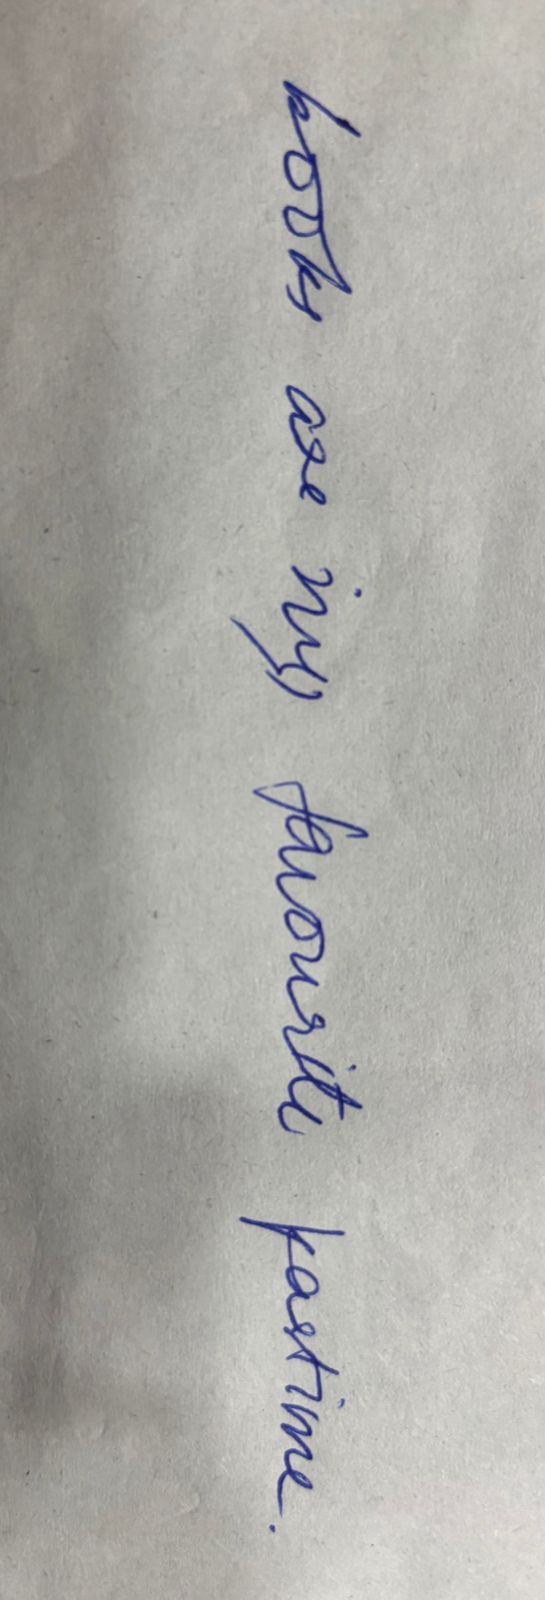 books are my favourite pastime.